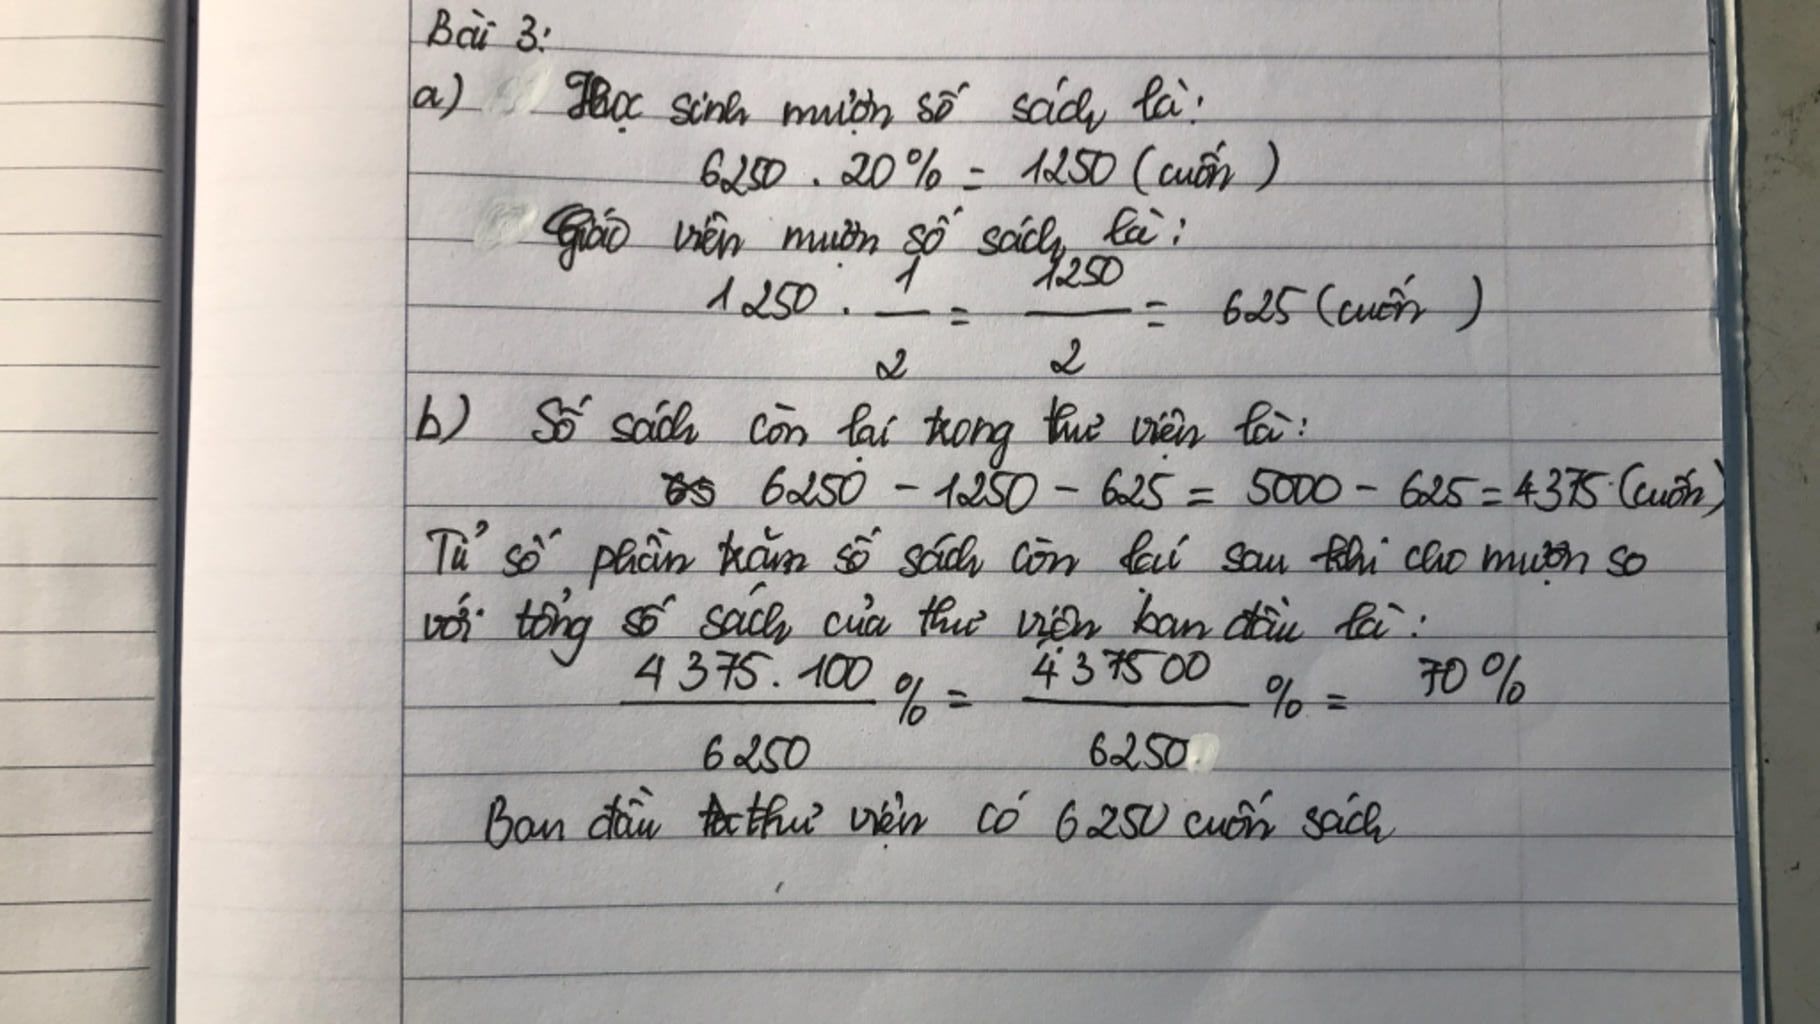 Bài 3:
a) Học sinh mượn số sách là:
6250 . 20% = 1250 (cuốn)
Giáo viên mượn số sách là:
1250 . 1/2 = 1250/2 = 625 (cuốn)
b) Số sách còn lại trong thư viện là:
6250 - 1250 - 625 = 5000 - 625 = 4375 (cuốn)
Tỉ số phần trăm số sách còn lại sau khi cho mượn so
với tổng số sách của thư viện ban đầu là:
4375.100/6250 % = 437500/6250 % = 70%
Ban đầu thư viện có 6250 cuốn sách